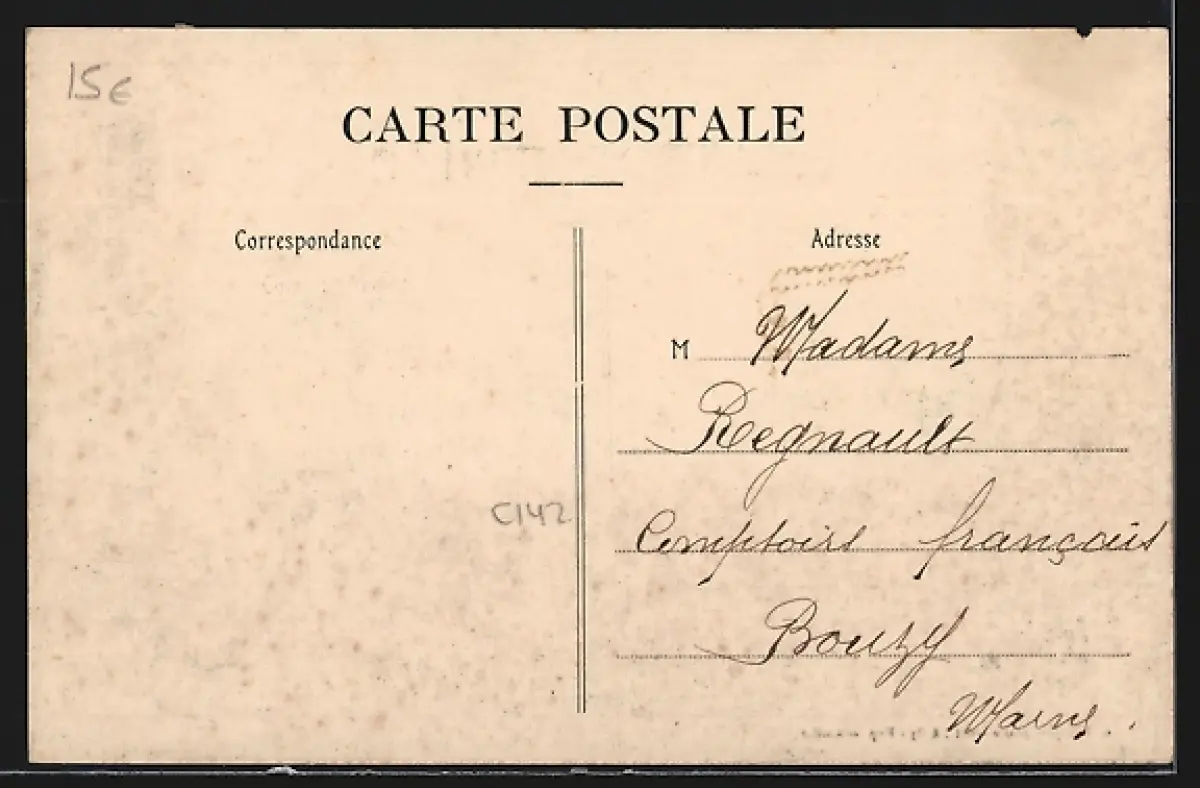 15€
CARTE POSTALE
Correspondance
Adresse
M Madame
Regnault
Comptoirs français
C142
Bouzy
Marne.